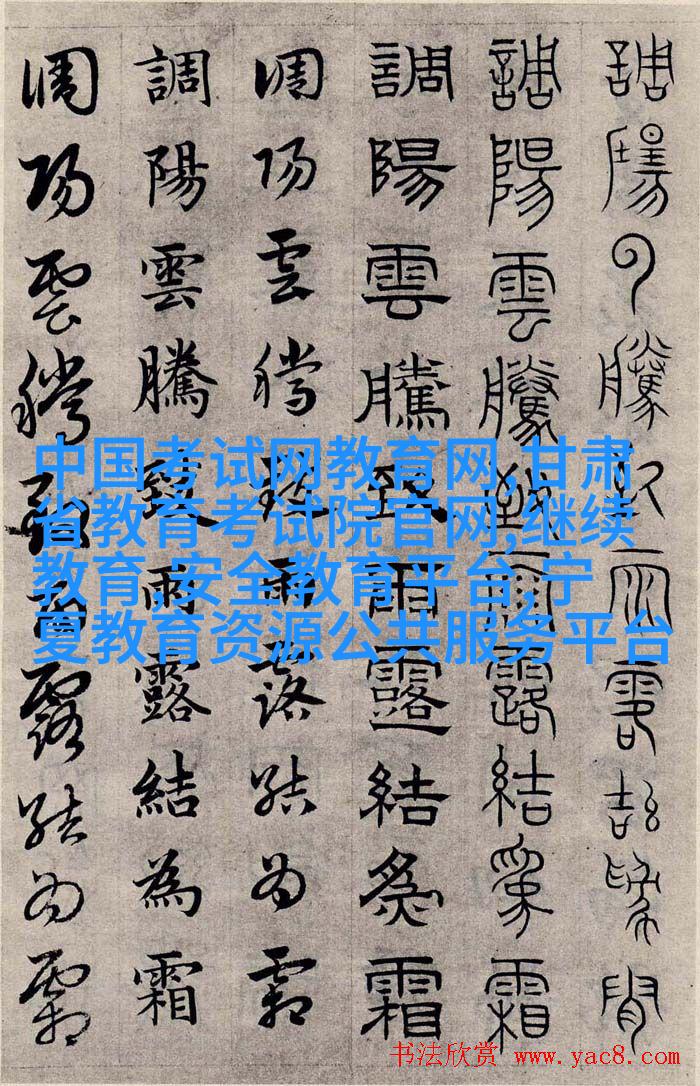 調陽雲騰致雨露結為霜
調陽雲騰致雨露結為霜
調陽雲騰致雨露結為霜
調陽雲騰致雨露結為霜
調陽雲騰致雨露結為霜
調陽雲騰致雨露結為霜
中国考试网教育网,甘肃
省教育考试院官网,继续
教育,安全教育平台,宁
夏教育资源公共服务平台
书法欣赏 www.yac8.com